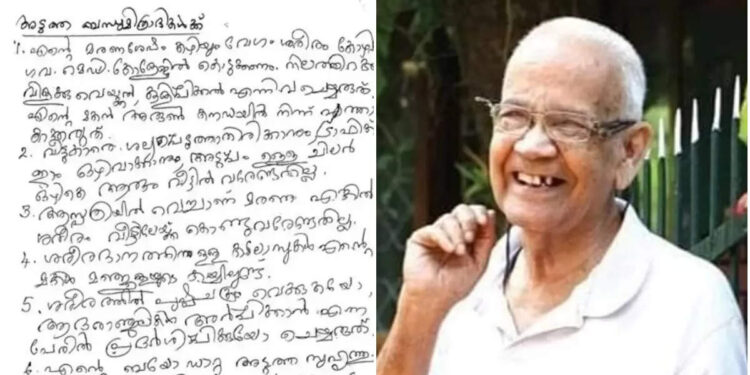 അടുത്ത ബന്ധുമിത്രാദികൾക്ക്
1. എന്റെ മരണശേഷം കഴിയും വേഗം ശരീരം കോഴി
ഗവ. മെഡി. കോളേജിൽ കൊടുക്കണം. നിലത്തിറക്ക
വിളക്കു വെയ്ക്കൽ, കുളിപ്പിക്കൽ എന്നിവ ചെയ്യരുത്
എന്റെ മകൻ അരുൺ കനഡയിൽ നിന്ന് എത്താ
കാക്കരുത്.
2. വീട്ടുകാരെ ശല്യപ്പെടുത്താതിരിക്കാനും ട്രാഫിക്
ഒഴിവാക്കാനും അടുപ്പം ഉള്ള ചിലർ
ഒഴികെ ആരും വീട്ടിൽ വരേണ്ടതില്ല.
3. ആസ്പത്രിയിൽ വെച്ചാണ് മരണം എങ്കിൽ
ശരീരം വീട്ടിലേയ്ക്ക് കൊണ്ടുവരേണ്ടതില്ല.
4. ശരീരദാനത്തിന്നുള്ള കടലാസുകൾ എന്റെ
മകൾ മഞ്ജുളയുടെ കയ്യിലുണ്ട്.
5. ശരീരത്തിൽ പുഷ്പചക്രം വെക്കുകയോ,
ആദരാഞ്ജലികൾ അർപ്പിക്കാൻ എന്ന
പേരിൽ പ്രദർശിപ്പിക്കുകയോ ചെയ്യരുത്.
6. എന്റെ ബയോഡാറ്റ അടുത്ത സുഹൃത്തു